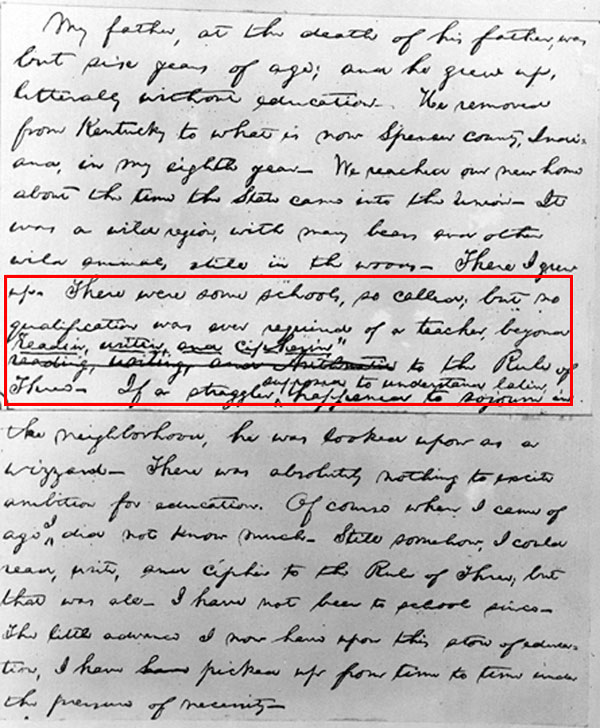 My father, at the death of his father, was
but six years of age; and he grew up,
litterally without education. He removed
from Kentucky to what is now Spencer county, Indi-
ana, in my eighth year— We reached our new home
about the time the State came into the Union— It
was a wild region, with many bears and other
wild animals, still in the woods— There I grew
up. There were some schools, so called; but no
qualification was ever required of a teacher, beyond
"readin, writin, and cipherin"
reading, writing, and Arithmetic to the Rule of
supposed to understand latin,
Three— If a straggler happened to sojourn in
the neighborhood, he was looked upon as a
wizzard— There was absolutely nothing to excite
ambition for education. Of course when I came of
age I did not know much— Still somehow, I could
read, write, and cipher to the Rule of Three; but
that was all— I have not been to school since—
The little advance I now have upon this store of educa-
tion, I have have picked up from time to time under
the pressure of necessity—